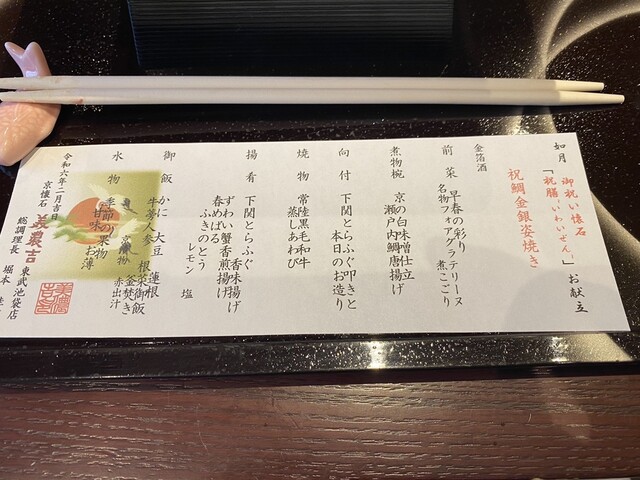 如月
御祝い懐石
「祝膳 -いわいぜん-」お献立
祝鯛金銀姿焼き
金箔酒
前菜 早春の彩り
名物フォアグラテリーヌ 煮こごり
煮物椀 京の白味噌仕立
瀬戸内鯛唐揚げ
向付 下関とらふぐ叩きと
本日のお造り
焼物 常陸黒毛和牛
蒸しあわび
揚肴 下関とらふぐ 香味揚げ
ずわい蟹香煎揚げ
春めばる
ふきのとう
レモン 塩
御飯 かに 大豆 蓮根
牛蒡 人参 根菜御飯
釜焚き
赤出汁
香の物
水物 季節の果物
甘味 お薄
令和六年二月吉日
京懐石 美濃吉 東武池袋店
総調理長 堀本